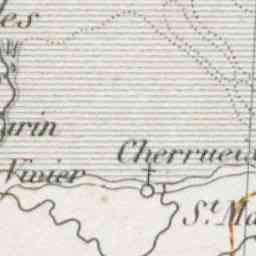 es
arin
Vivier
Cherrueix
S.t Ma